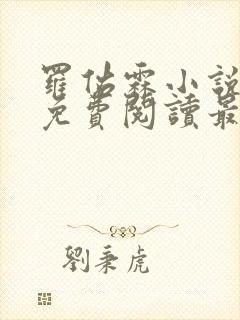 羅佑霖小說
免費閱讀最
劉秉虎